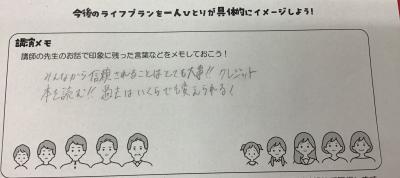 今後のライフプランを一人ひとりが具体的にイメージしよう!
講演メモ
講師の先生のお話で印象に残った言葉などをメモしておこう!
みんなから信頼されることはとても大事!! クレジット
本を読む!! 過去はいくらでも変えられる!